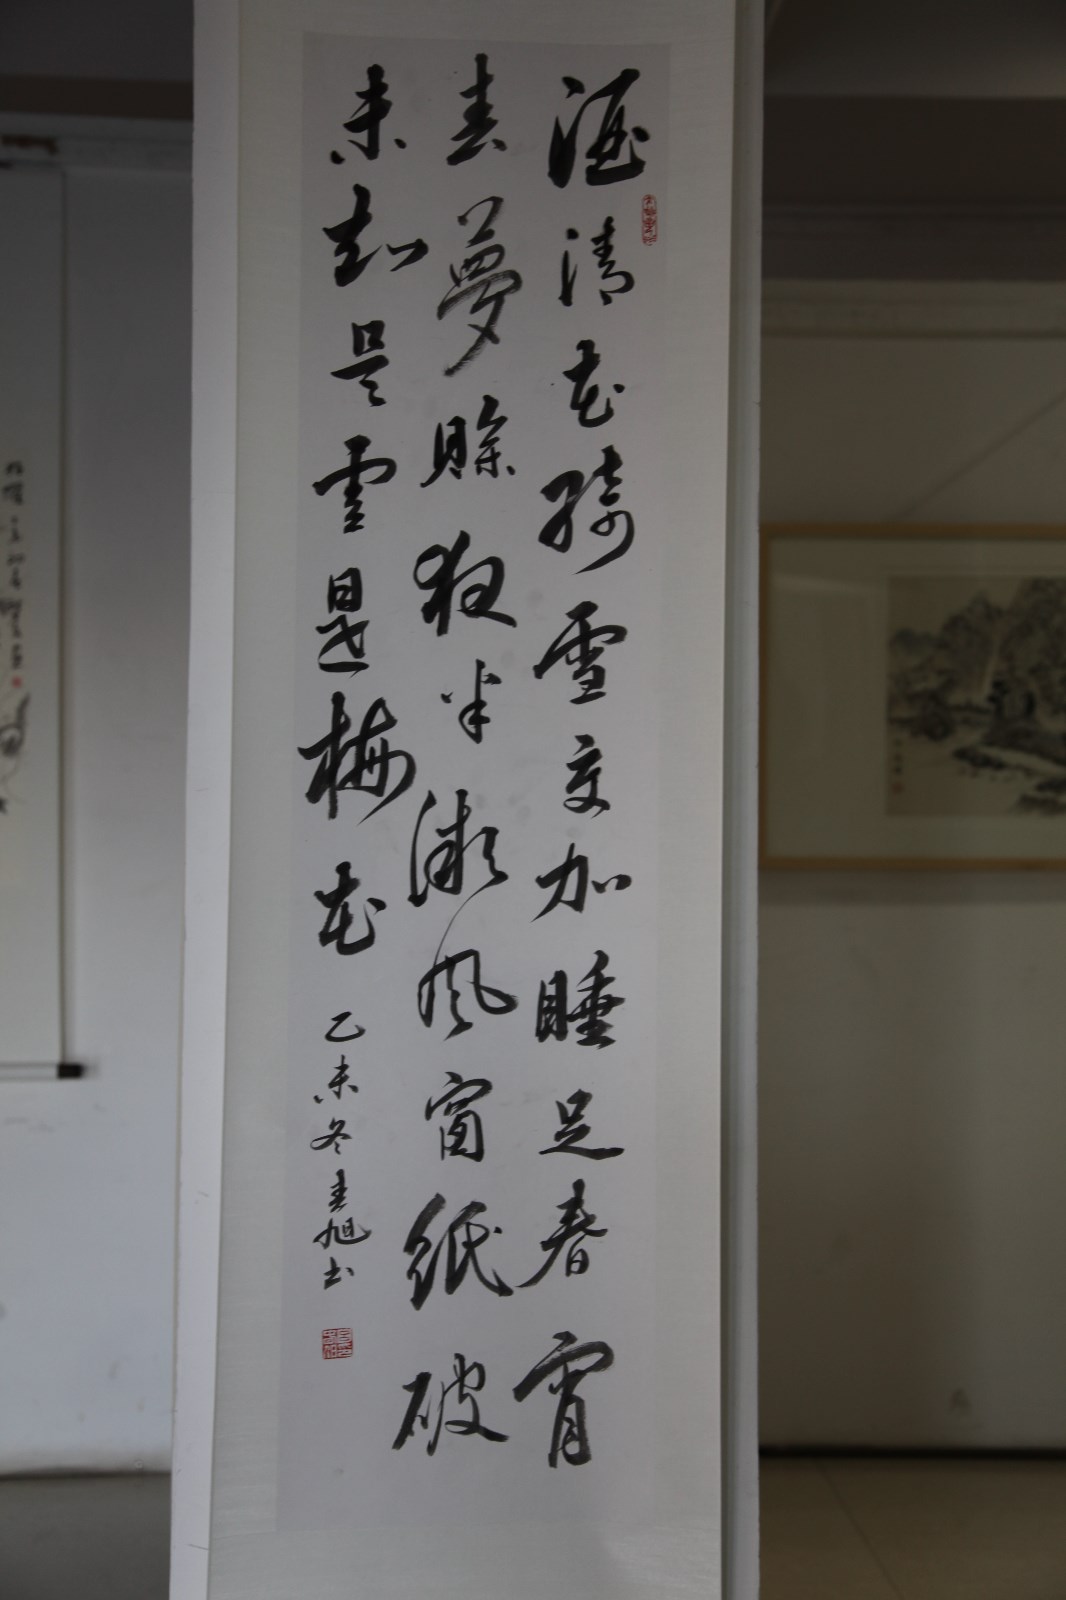 酒清花綺雪交加睡足春宵
去夢賒夜半微风窗紙破
未知是雪是梅花
乙未冬旭书